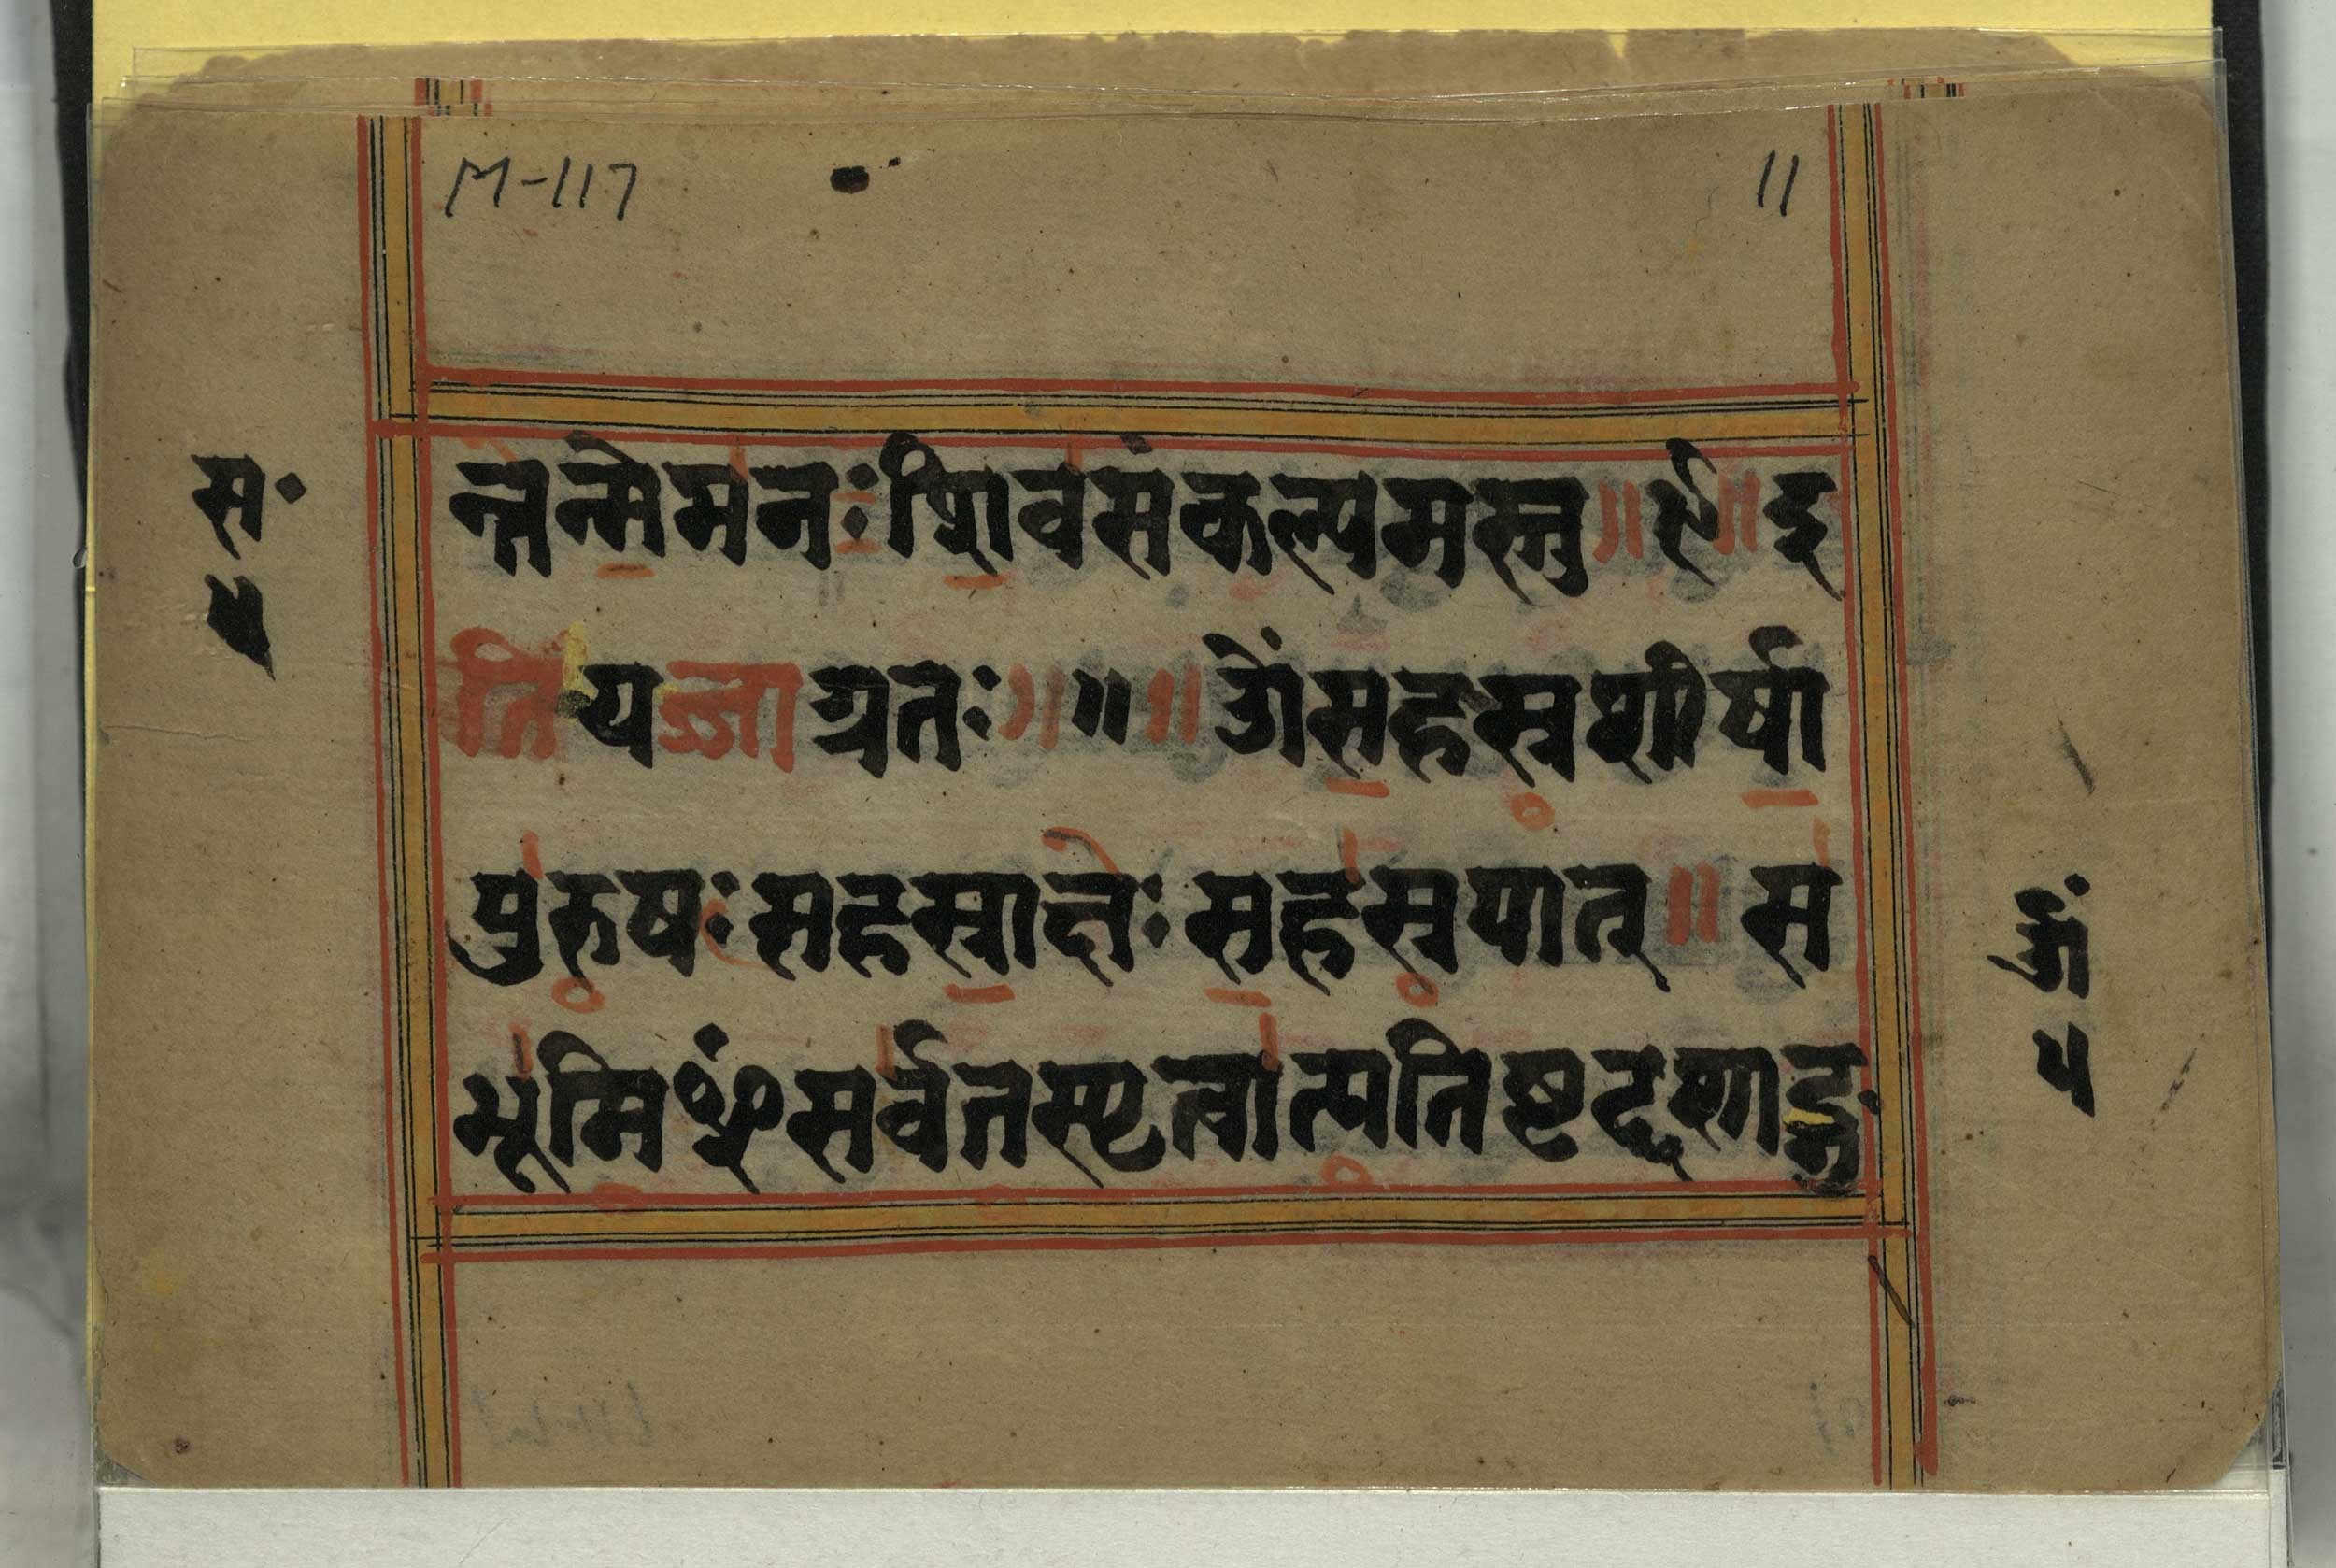 M-117
11
न्तन्मेमनःशिवसंकल्पमस्तु॥६॥इ
तियज्जाग्रतः॥॥॥ओंसहस्रशीर्षा
पुरुषःसहस्राक्षः सहस्रपात्॥स
भूमिꣳसर्वतस्पृत्वात्यतिष्ठद्दशाङ्गु
सं
५
अं
५